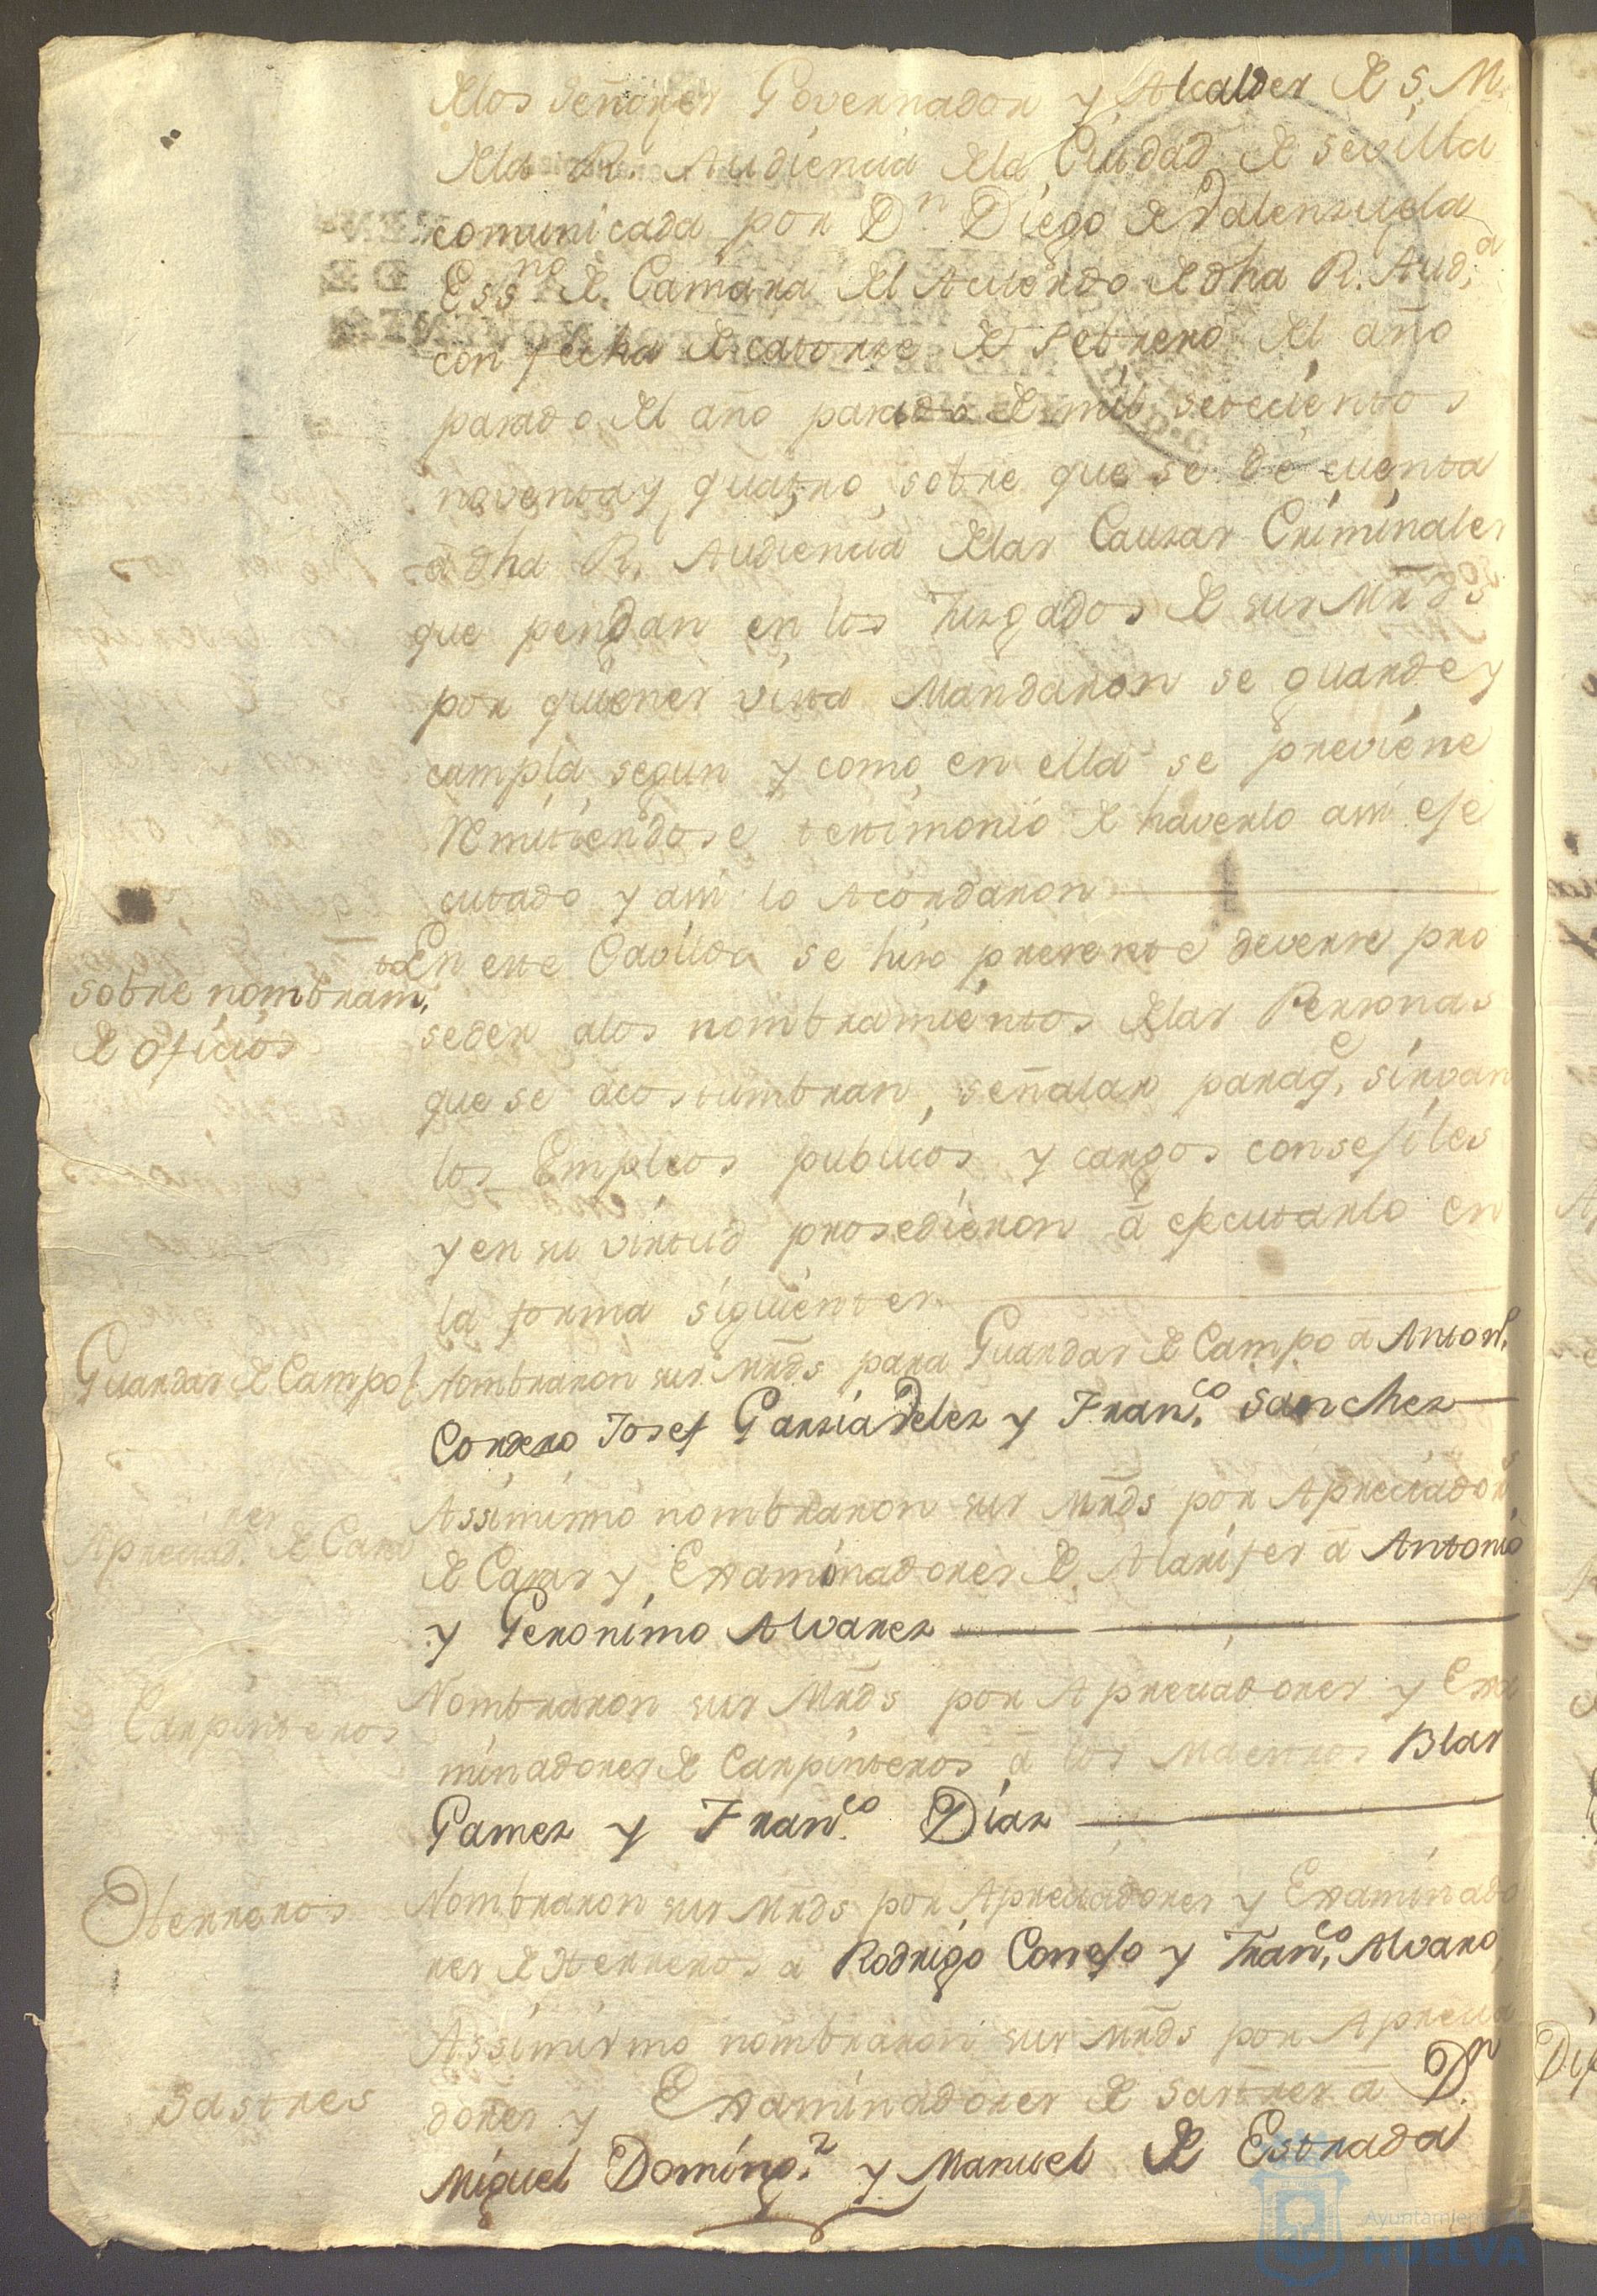 de los Señores Governador y Alcaldes de S. M.
de la R. Audiencia de la Ciudad de Sevilla
comunicada por Dn. Diego de Valenzuela
Essno. de Camara del Acuerdo de dha R. Auda.
con fecha de catorze de Febrero del año
pasado del año pasado de mil setecientos
noventa y quatro, sobre que se dé cuenta
a dha R. Audiencia de las Causas Criminales
que pendan en los Juzgados de sus Mrds
por quienes vista Mandaron se guarde y
cumpla segun y como en ella se previene
Remitiendose testimonio de haverlo assi eje
cutado y assi lo Acordaron
sobre nombramto.
de oficios
En este Cavildo se hizo presente deverse pro
seder a los nombramientos de las Personas
que se acostumbran señalar paraqe. sirvan
los Empleos publicos y cargos consejiles
y en su virtud prosedieron â ejecutarlo en
la forma siguientes
Guardas de Campo
Nombraron sus Mrds para Guardas de Campo â Anton.
Cordero Josef Garzia Velez y Franco. Sanchez
Apreciadres. de Casas
Assimismo nombraron sus Mrds por Apreciadors.
de Casas y Examinadores de Alarifes â Antonio
y Geronimo Alvarez
Carpinteros
Nombraron sus Mrds por Apreciadores y Exa
minadores de Carpinteros â los Maestros Blas
Gamez y Franco. Diaz
Herreros
Nombraron sus Mrds por Apreciadores y Examinado
res de Herreros a Rodrigo Conejo y Franco. Alvaro
Sastres
Assimismo nombraron sus Mrds por Aprecia
dores y Examinadores de Sastres â Dn.
Miguel Domingz. y Manuel de Estrada
Ayuntamiento
HUELVA